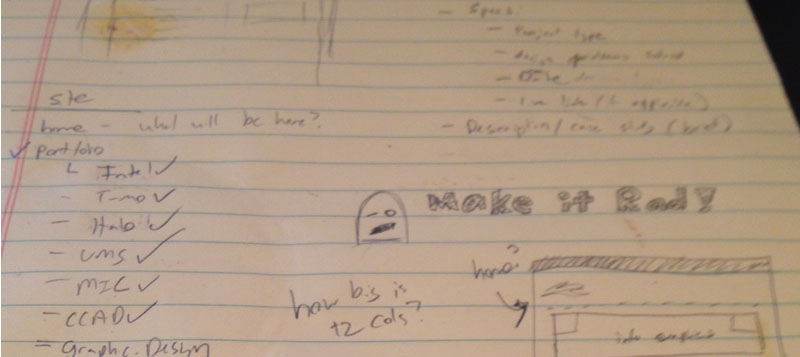 - Specs:
- Project type
- Design
- Live link (if applicable)
- Description/case study (brief)
site
home - what will be here?
✓ Portfolio
- Intel ✓
- T-mo ✓
- Halo ✓
- UMS ✓
- MIC ✓
- CCAD ✓
= Graphic Design
Make it Rad!
how big is
12 cols?